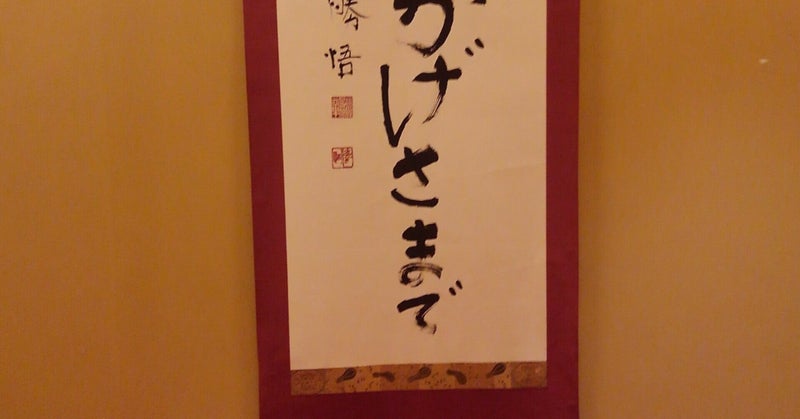 かげさまで
勝悟